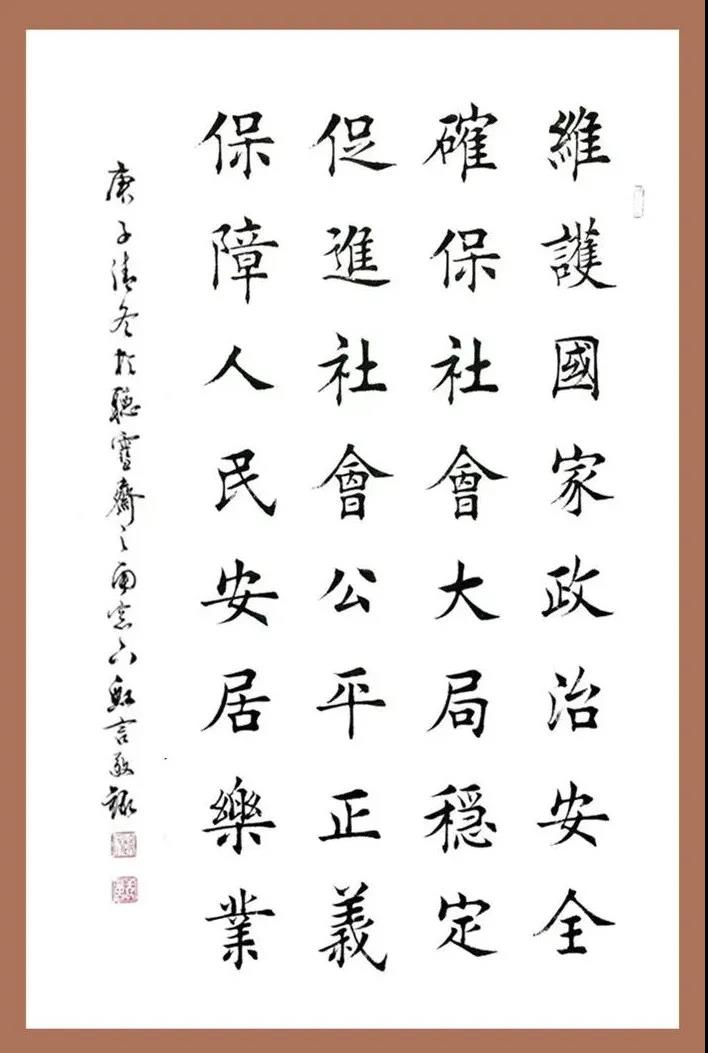 維護國家政治安全
確保社會大局穩定
促進社會公平正義
保障人民安居樂業
庚子清冬於聽雪齋之南窓下 言敬錄